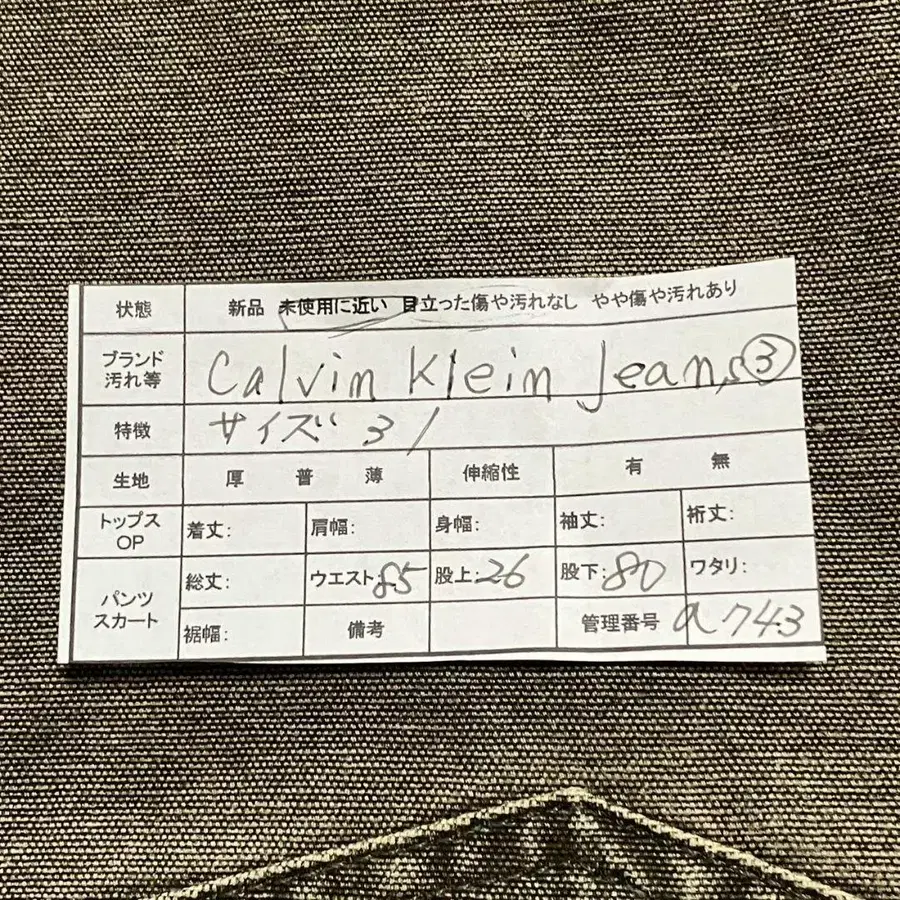 状態 新品 未使用に近い 目立った傷や汚れなし やや傷や汚れあり
ブランド
汚れ等 Calvin Klein Jeans ③
特徴 サイズ 31
生地 厚 普 薄 伸縮性 有 無
トップス
OP 着丈: 肩幅: 身幅: 袖丈: 裄丈:
パンツ
スカート 総丈: ウエスト:85 股上:26 股下:80 ワタリ:
裾幅: 備考 管理番号 a743